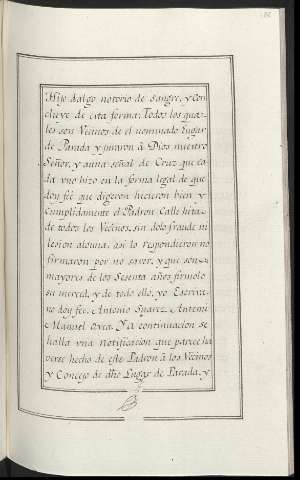 Hijo dalgo notorio de sangre, y con
cluye de esta forma, Todos los qua=
les son Vecinos de el nominado lugar
de Parada y juraron à Dios nuestro
Señor, y a una señal de Cruz que ca
da uno hizo en la forma legal de que
doy feè que digeron hicieron bien y
cumplidamente el Padron Calle hita
de todos los Vecinos, sin dolo fraude ni
lesion alguna, asi lo respondieron no
firmaron por no saver, y que son
mayores de los Sesenta años firmolo
su merced, y de todo ello, yo Escriva=
no doy feè, Antonio Suarez. Antemi
Manuel Ovca. Y a continuacion se
halla una notificacion que parece ha
verse hecho de este Padron à los Vecinos
y Concejo de dho Lugar de Parada, y